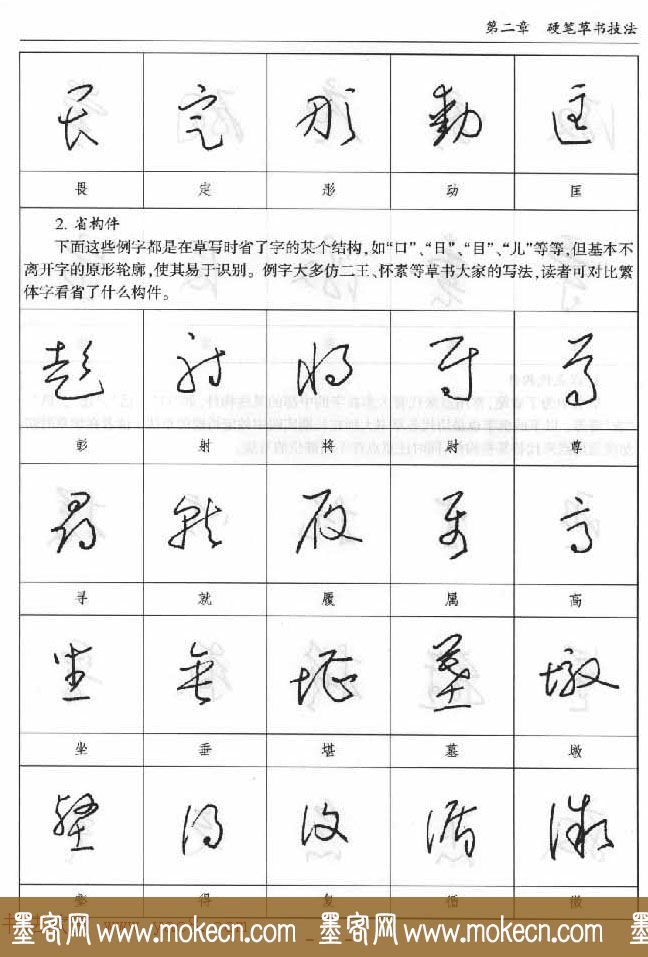 第二章 硬笔草书技法
畏 定 形 动 匡
2. 省构件
下面这些例字都是在草写时省了字的某个结构,如“口”、“日”、“目”、“儿”等等,但基本不
离开字的原形轮廓,使其易于识别。例字大多仿二王、怀素等草书大家的写法,读者可对比繁
体字看省了什么构件。
彭 射 将 尉 尊
寻 就 履 属 高
坐 垂 堪 墓 墩
得 复 循 微
墨客网 www.mokecn.com 墨客网 www.mokecn.com